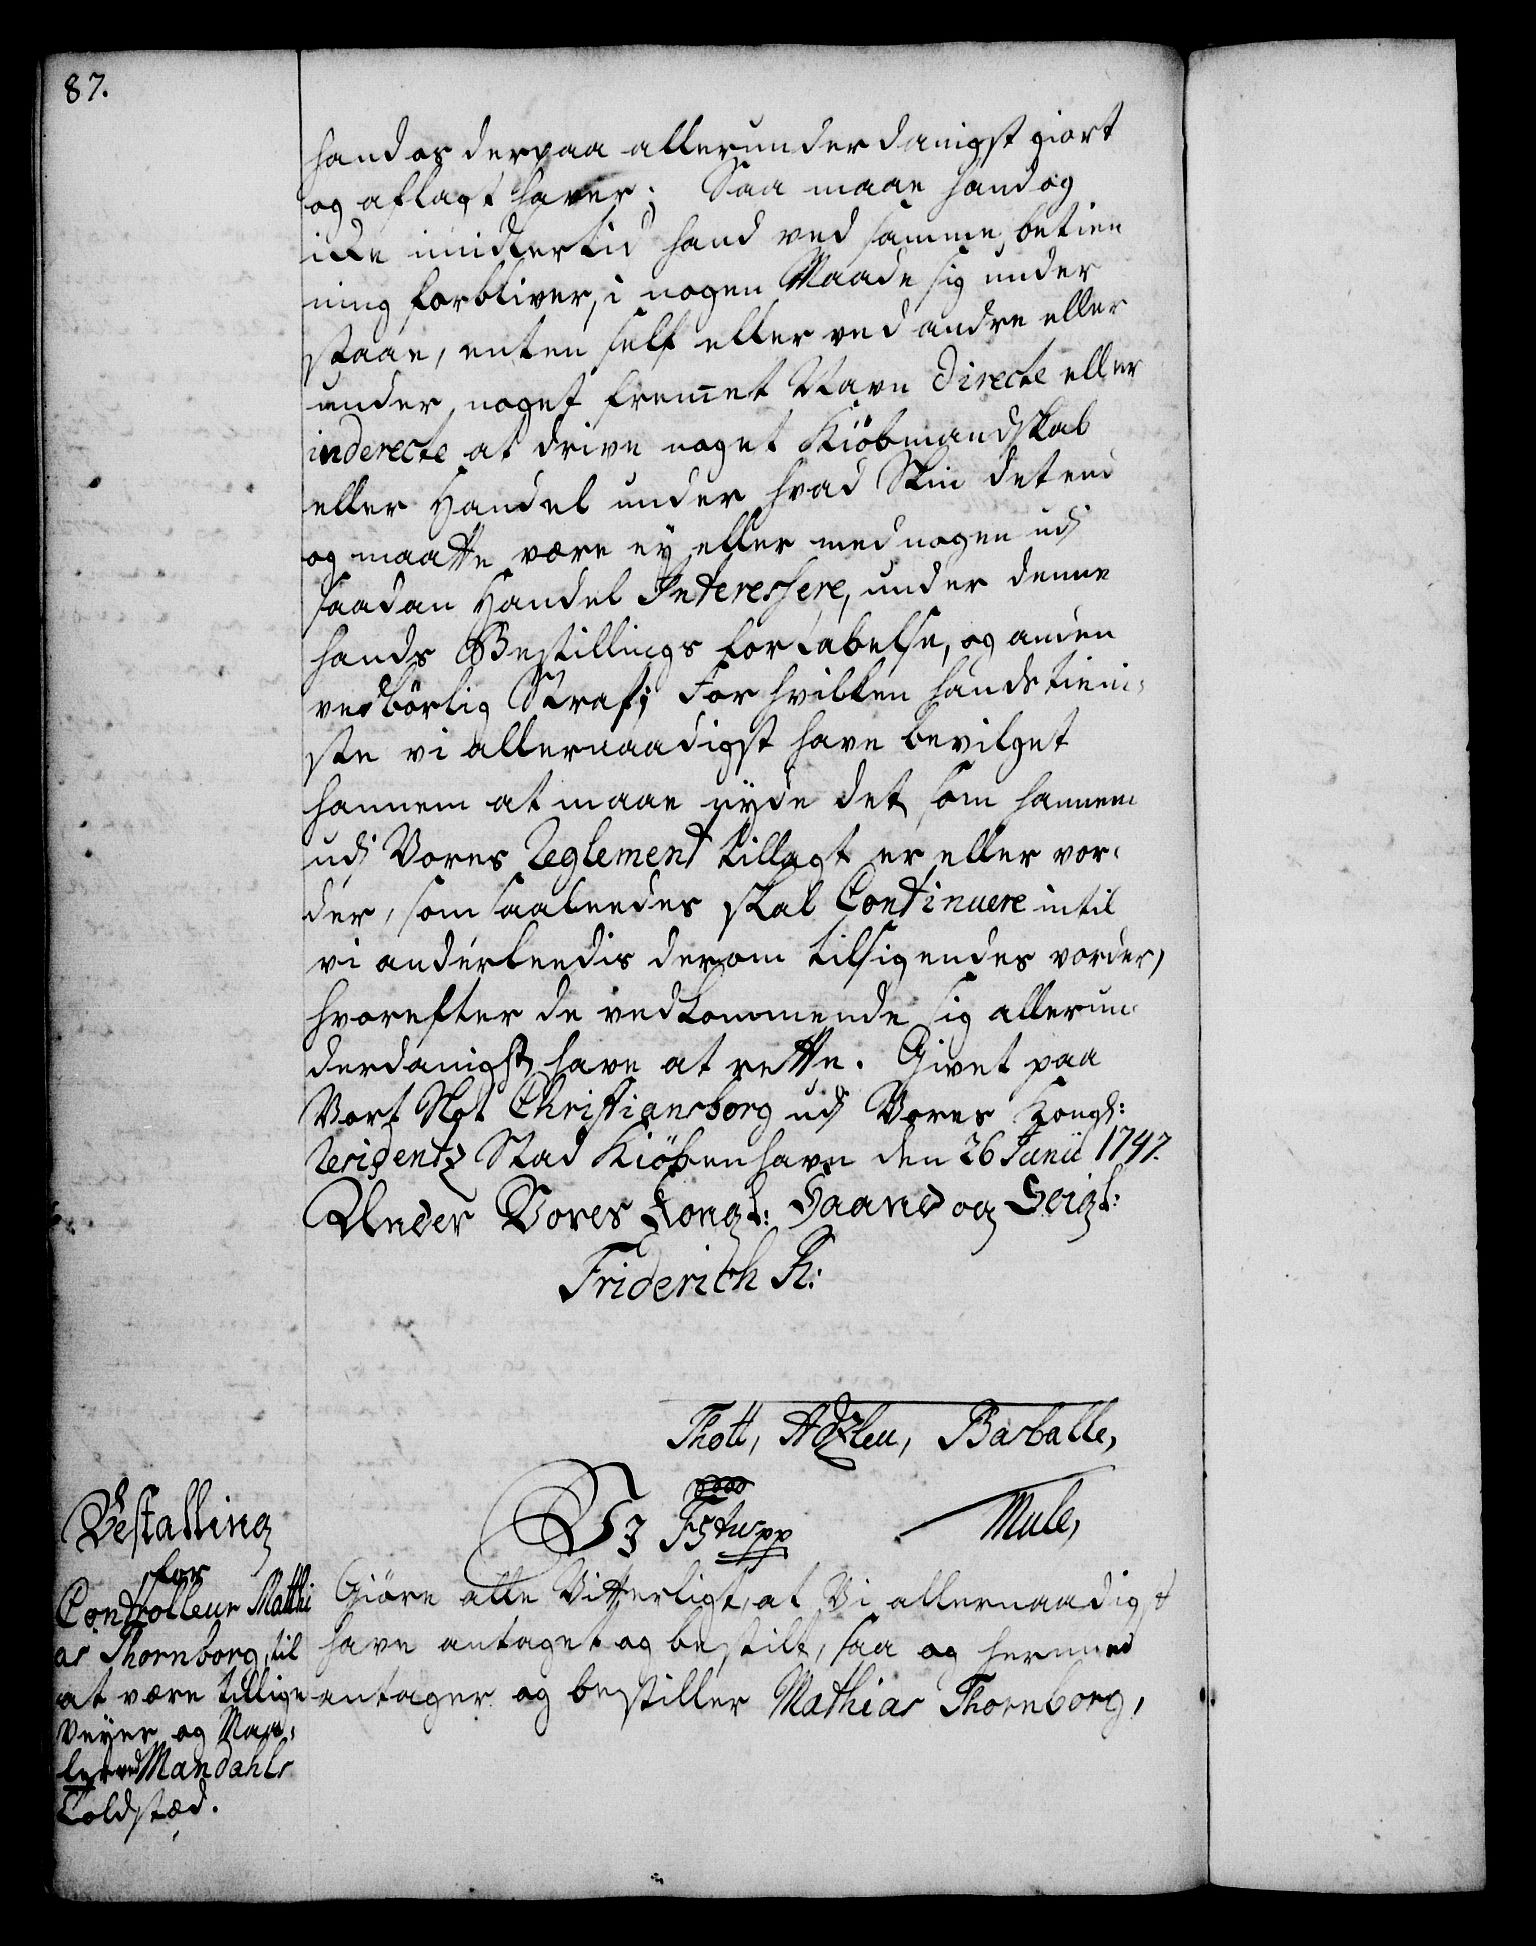 87.
hand os derpaa allerunderdanigst giort
og aflagt haver; Saa maae hand og
icke imidlertid hand ved samme betien
ning forbliver, i nogen Maade sig under
staae, enten self eller ved andre eller
under noget fremet Navn directe eller
inderecte at drive noget Kiöbmandskab
eller Handel under hvad Skin det end
og maatte være ey eller med nogen udj
saadan Handel Interessere, under denne
hands Bestillings fortabelse, og anden
vedbörlig Straf; For hvilken hands tieni-
ste vi allernaadigst have bevilget
hannem at maae nyde det som hannem
udj Vores Reglement tillagt er eller vor-
der, som saaleedes skal Continuere intil
vi anderleedis derom tilsigendes vorder,
hvorefter de vedkommende sig allerun-
derdanigst have at rette. Givet paa
Vort Slot Christiansborg udj Vores Kongl:
Residentz Stad Kiöbenhavn den 26 Junii 1747.
Under Vores Kongl: Haand og Seigl:
Friderich R:
Thott, Adzleu, Barballe,
Mule,
Bestalling
for
Controlleur Mathi
as Thornborg, til
at være tillige
Veyer og Maa-
ler ved Mandahls
Toldstæd.
V5 F5tus pp
Giöre alle Vitterligt, at Vi allernaadigst
have antaget og bestilt, saa og hermed
antager og bestiller Mathias Thornborg,